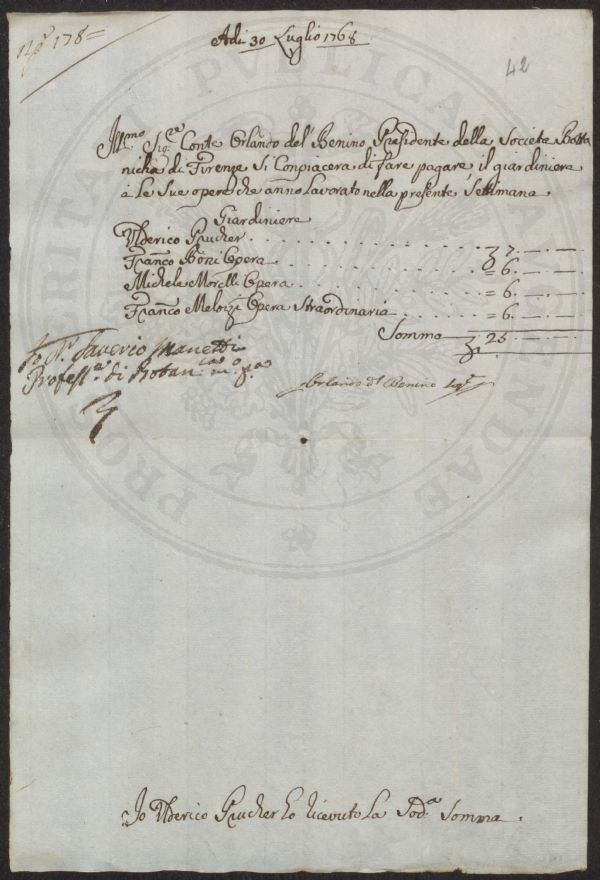 N.º 178=
Adi 30 Luglio 1768
42
Ill.mo Sig.re Conte Orlando del Benino Presidente della Societa Bota
nicha di Firenze Si Conpiacera di fare pagare il giardiniere
à le Sue opere che anno Lavorato nella presente Settimana
Giardiniere
Ulderico Prucher . . . . 7. — —
Franco Boni Opera . . . . = 6. — —
Michele Morelli Opera . . . . = 6. — —
Franco Meloizi Opera Straordinaria . . . . = 6. — —
Somma 25 — —
Io D.r Saverio Manetti
Profess.e di Botan.ca m.o p.a
Orlando del Benino
Io Ulderico Prucher ho ricevuto La Sod.a Somma.
PROSPERITATI PUBLICAE AUGENDAE